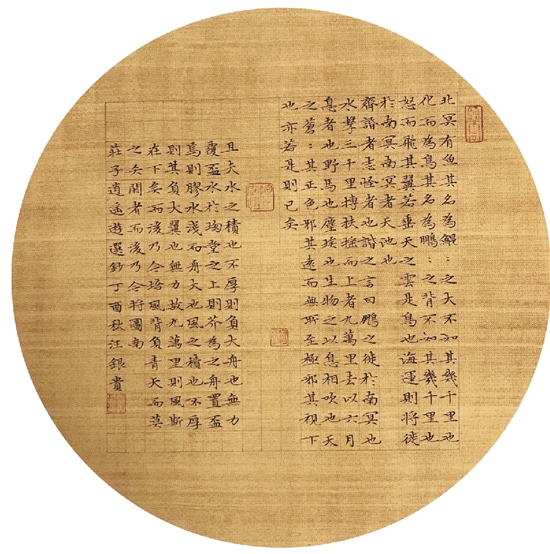 北冥有魚其名為鯤:之大不知其幾千里也
化而為鳥其名為鵬:之背不知其幾千里也
怒而飛其翼若垂天之雲是鳥也海運則將徙
於南冥南冥者天池也
齊諧者志怪者也諧之言曰鵬之徙於南冥也
水擊三千里摶扶搖而上者九萬里去以六月
息者也野馬也塵埃也生物之以息相吹也天
之蒼:其正色邪其遠而無所至極邪其視下
也亦若是則已矣
且夫水之積也不厚則負大舟也無力
覆盃水於坳堂之上則芥為之舟置盃
焉則膠水淺而舟大也風之積也不厚
則其負大翼也無力故九萬里則風斯
在下矣而後乃今培風背負青天而莫
之夭閼者而後乃今將圖南
莊子逍遙遊選鈔丁酉秋汪銀貴